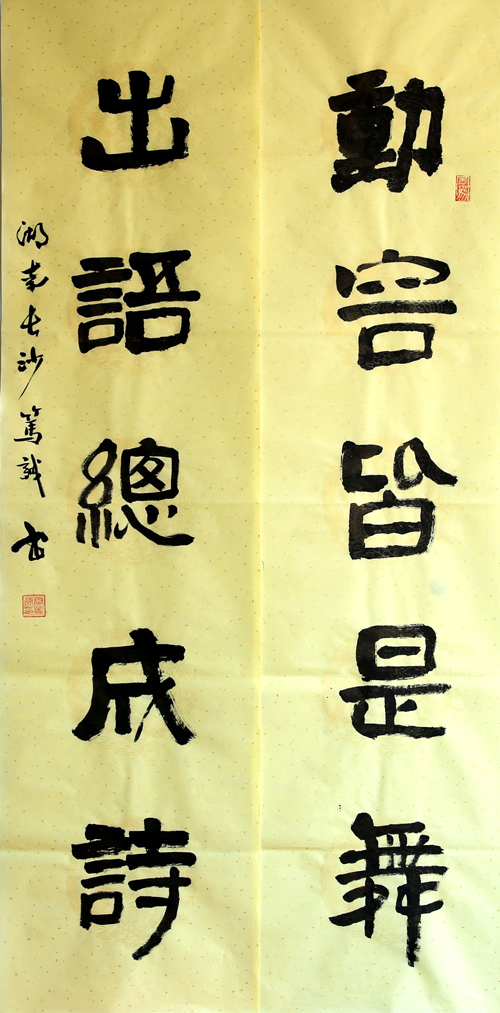 動容皆是舞
出語總成詩
湖南长沙篤誠书